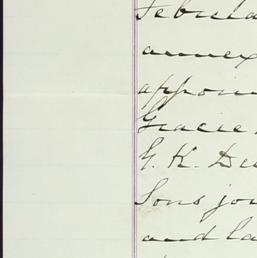 Februa
annex
appoin
Gracie
G. K. De
Sons jo
and la